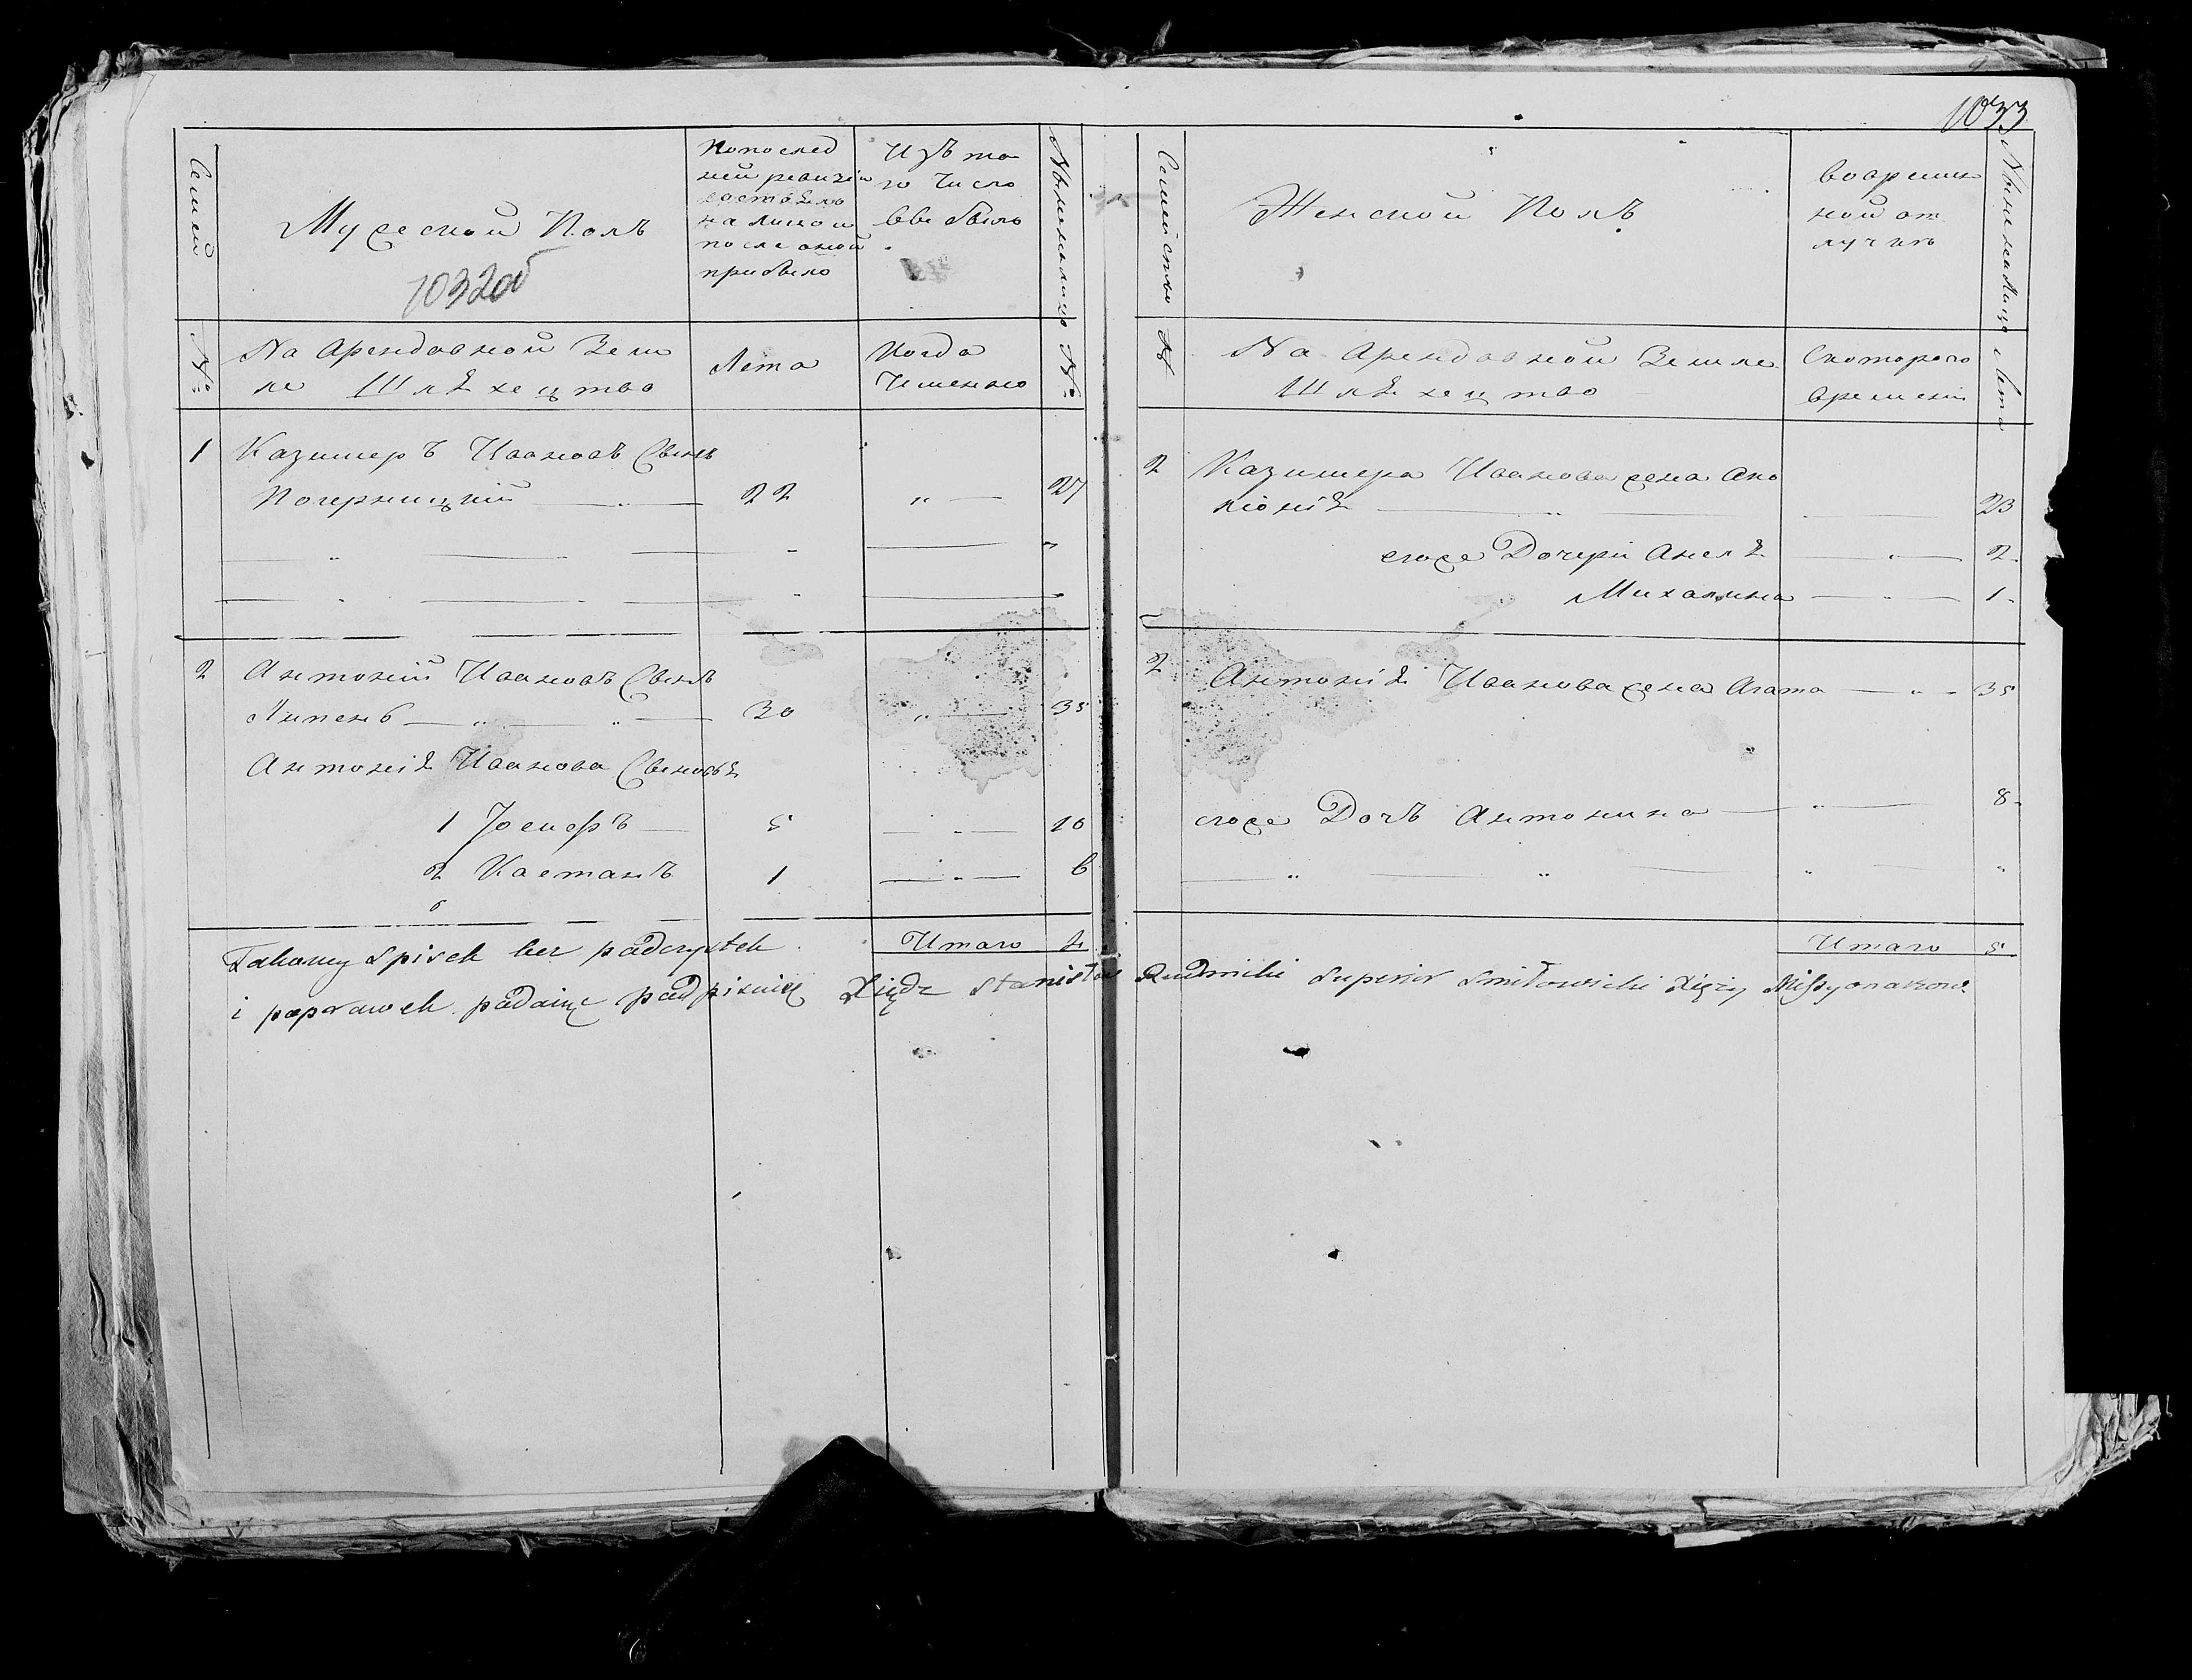 1033
Семей
Мужеской Полъ
1032об
Попослед
ней ревизіи
состояло
на лицо и
после оной
прибыло
Изъ то
го Число
выбыло
Ныне налицо
№
На Арендовной Зем
ле Шляхецтво
Лета
Когда
Именно
№
1 Казимеръ Ивановъ Сынъ
Почерницкій 22 „ 27
2 Антоній Ивановъ Сынъ
Липень 30 „ 35
Антонія Иванова Сыновья
1 Іосифъ 5 10
2 Каетанъ 1 6
Итаго 4
Семейство
Женской Полъ
вовремен
ной от
лучке
Ныне налицо
№
На Арендовной Земле
Шляхецтво
Скоторого
времени
Лета
2 Казимера Иванова жена Апо
лонія 23
егоже Дочери Анеля 2
Михалина 1
2 Антонія Иванова жена Агата 35
егоже Дочъ Антонина 8
Итаго 5
Takowy Spisek bez padczystek
i poprawek podaiąc padpisuię Xiądz Stanisław Rudnicki Superior Smiłowicki Xięży Missyonarzow